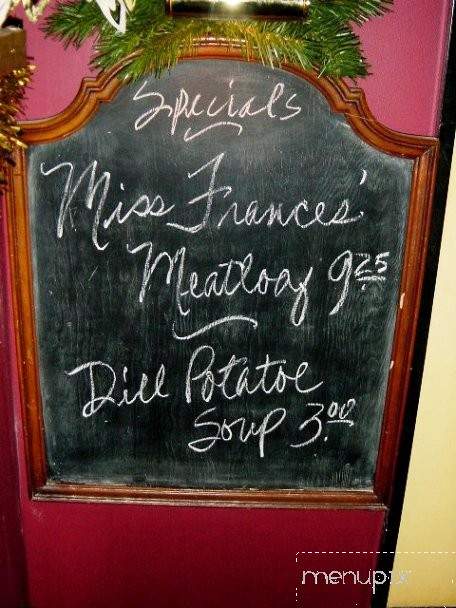 Specials
Miss Frances'
Meatloaf 9.25
Dill Potatoe
Soup 3.00
menupix